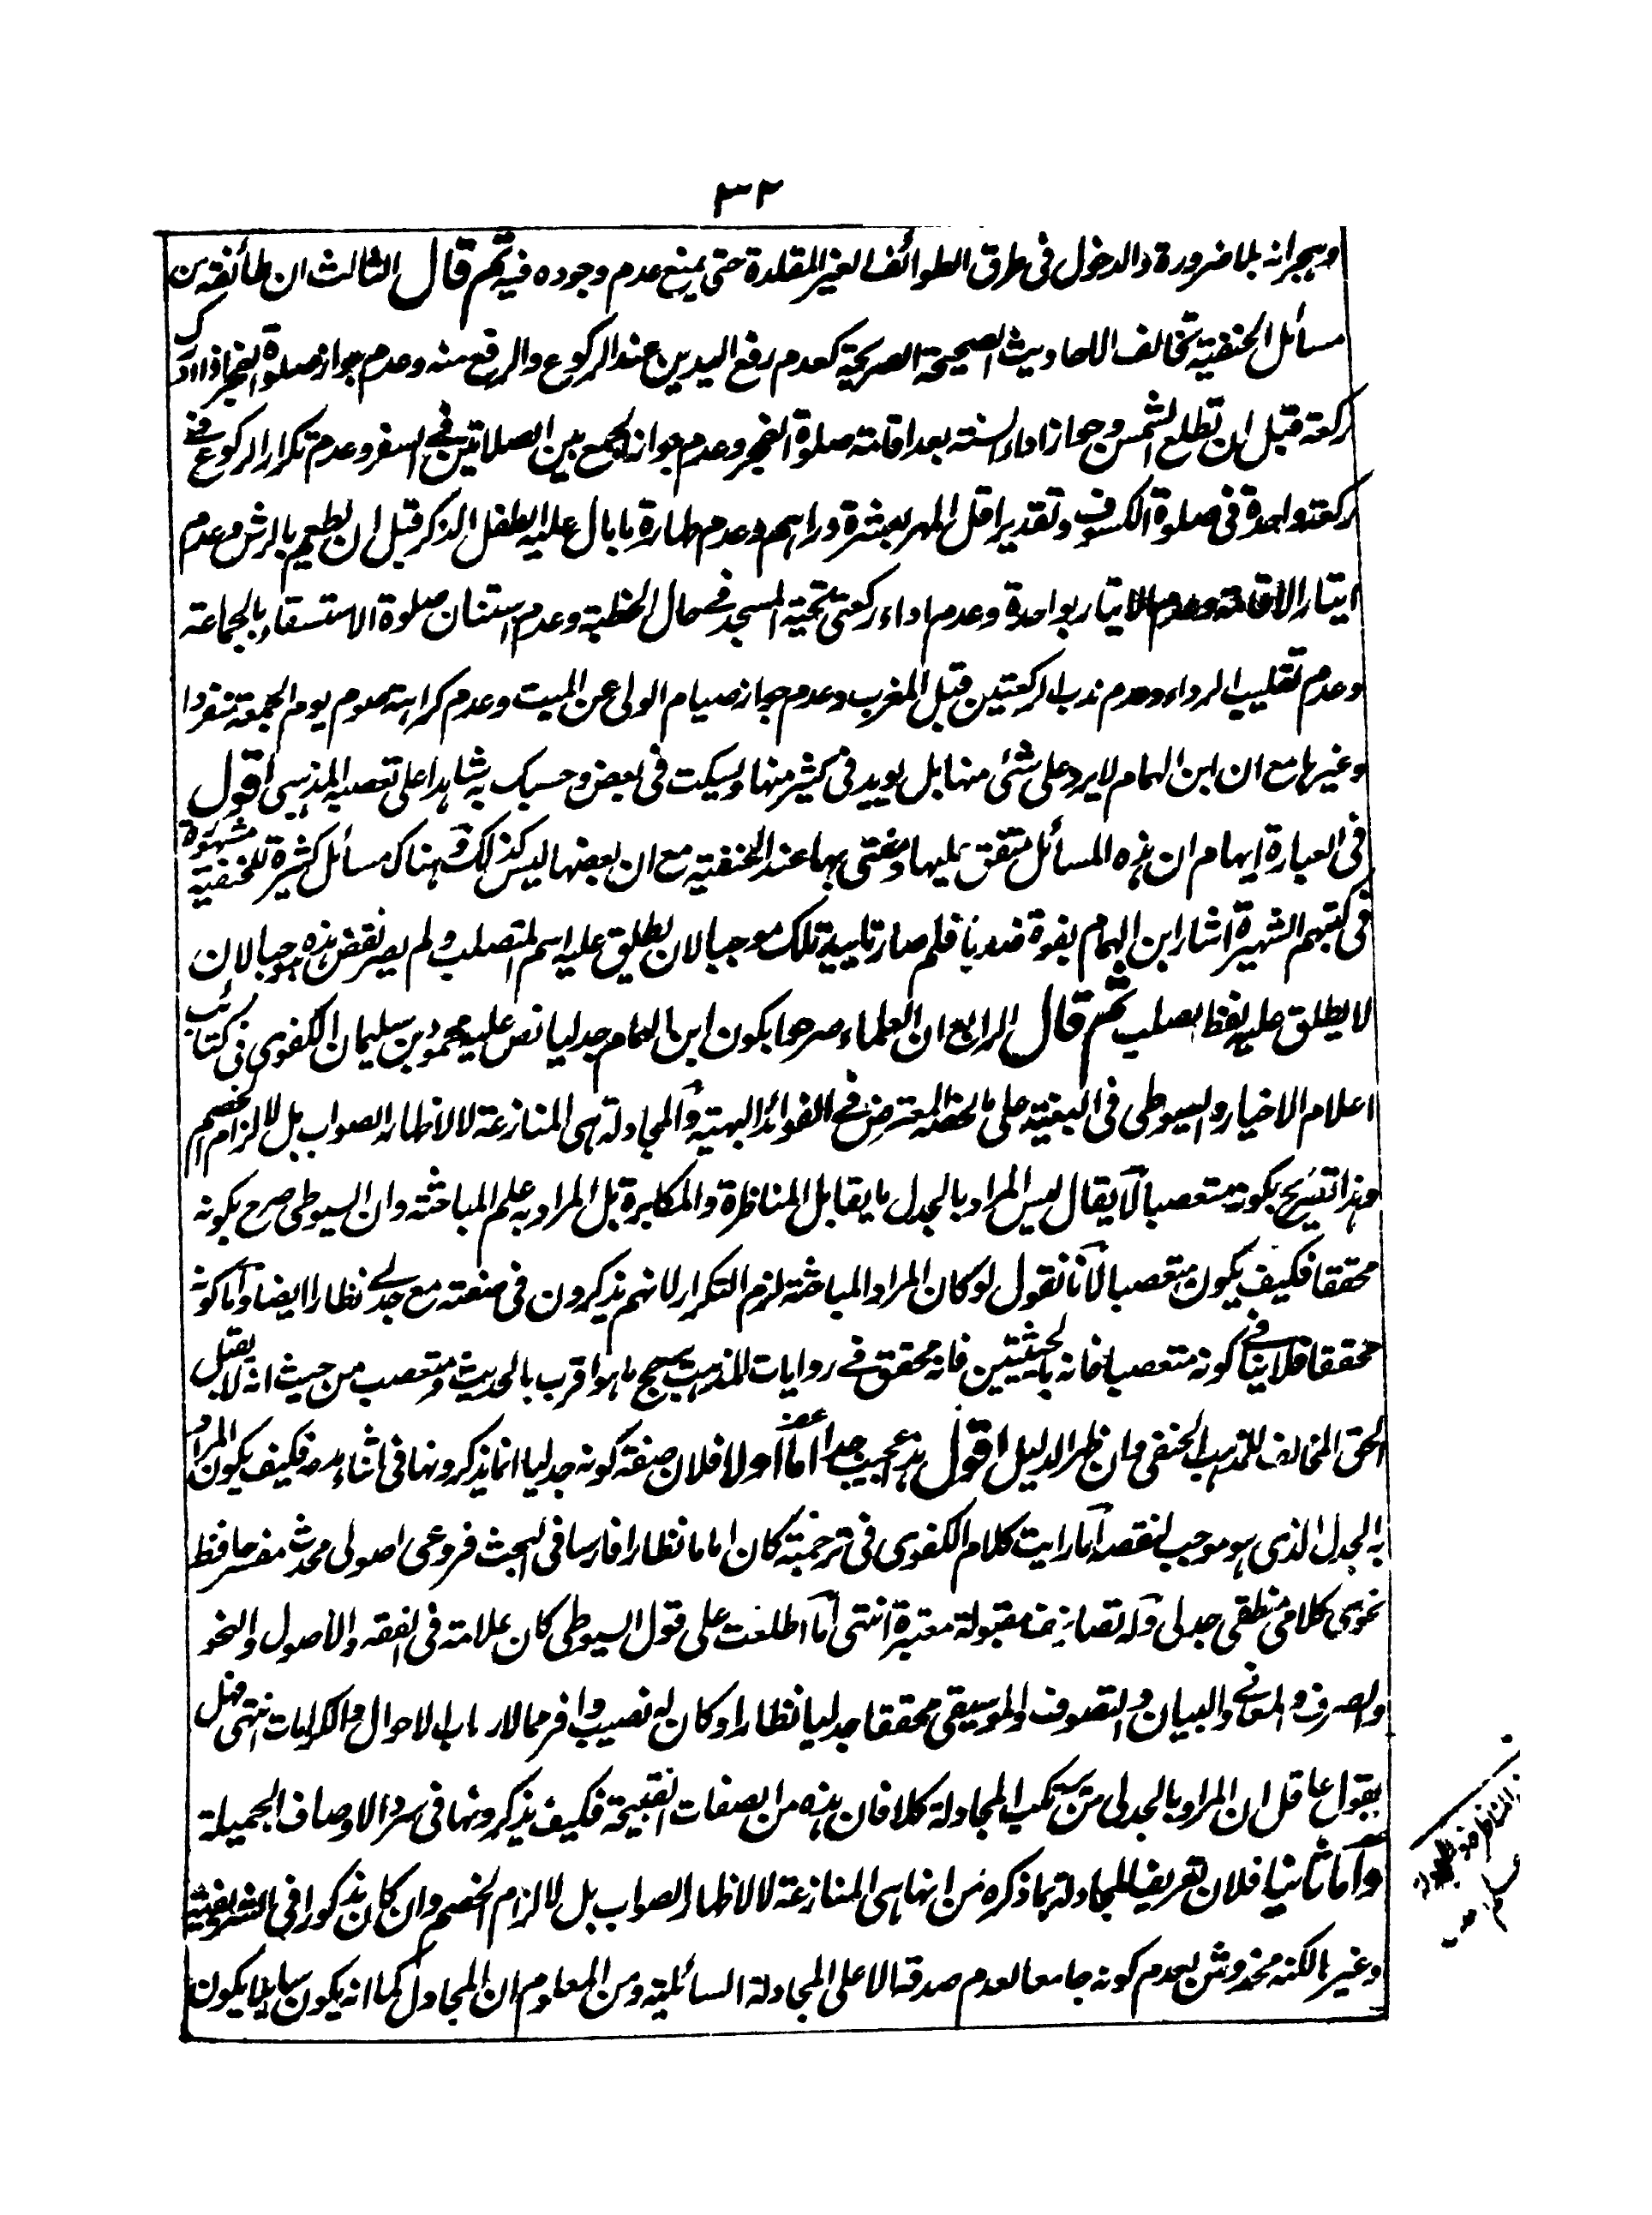 ٣٢
وهجرانه بلا ضرورة والدخول فى طرق الطوائف الغير المقلدة حتى يمنع عدم وجوده فيه ثم قال الثالث ان طائفة من
مسائل الحنفية تخالف الاحاديث الصحيحة الصريحة كعدم رفع اليدين عند الركوع والرفع منه وعدم جواز صلوة الفجر اذا ادرك
ركعة قبل ان تطلع الشمس وجواز اداء السنة بعد اقامة صلوة الفجر وعدم جواز الجمع بين الصلاتين فى السفر وعدم تكرار الركوع فى
ركعة واحدة فى صلوة الكسوف وتقدير اقل المهر بعشرة دراهم وعدم طهارة ما بال عليه الطفل الذكر قبل ان يطعم بالرش وعدم
ايتار الاقامة وعدم الايتار بواحدة وعدم اداء ركعتى تحية المسجد فى حال الخطبة وعدم استنان صلوة الاستسقاء بالجماعة
وعدم تقليب الرداء وعدم ندب الركعتين قبل المغرب وعدم جواز صيام الولى عن الميت وعدم كراهة صوم يوم الجمعة منفردا
وغيرها مع ان ابن الهمام لا يرد على شئ منها بل يويد فى كثير منها ويسكت فى بعض وحسبك به شاهدا على تعصبه المذهبى اقول
فى العبارة ايهام ان هذه المسائل متفق عليها ومفتى بها عند الحنفية مع ان بعضها ليس كذلك وهناك مسائل كثيرة للحنفية مشهورة
فى كتبهم الشهيرة اشار ابن الهمام بقوة ضدها فلم صار تاييده تلك موجبا لان يطلق عليه اسم المتصلب ولم يصر نقض هذه موجبا لان
لا يطلق عليه لفظ الصلب ثم قال الرابع ان العلماء صرحوا بكون ابن الهمام جدليا نص عليه محمود بن سليمان الكفوى فى كتائب
اعلام الاخيار والسيوطى فى البغية على ما نقله المعترض فى الفوائد البهية والمجادلة هى المنازعة لا لاظهار الصواب بل لالزام الخصم
وهذا تصريح بكونه متعصبا لا يقال ليس المراد بالجدل ما يقابل المناظرة والمكابرة بل المراد به علم المباحثة وان السيوطى صرح بكونه
محققا فكيف يكون متعصبا لانا نقول لو كان المراد المباحثة لزم التكرار لانهم يذكرون فى صنعته مع جدلى نظارا ايضا واما كونه
محققا فلا ينافى كونه متعصبا فانه بالحيثيتين فانه محقق فى روايات المذهب يرجح ما هو اقرب بالحديث ومتعصب من حيث انه لا يقبل
الحق المخالف للمذهب الحنفى وان ظهر الدليل اقول هذا عجيب جدا اما اولا فلان صفة كونه جدليا انما يذكرونها فى اثناء مدحه فكيف يكون المراد
به الجدل الذى هو موجب لنقصه اما رايت كلام الكفوى فى ترجمته كان اماما نظارا فارسا فى البحث فروعى اصولى محدث مفسر حافظ
نحوى كلامى منطقى جدلى وله تصانيف مقبولة معتبرة انتهى اما اطلعت على قول السيوطى كان علامة فى الفقه والاصول والنحو
والصرف والمعانى والبيان والتصوف والموسيقى محققا جدليا نظارا وكان له نصيب وافر مما لارباب الاحوال والكرامات انتهى فهل
يقول عاقل ان المراد بالجدلى مرتكب المجادلة كلا فان هذه من الصفات القبيحة فكيف يذكرونها فى سرد الاوصاف الجميلة
واما ثانيا فلان تعريف المجادلة بما ذكره من انها هى المنازعة لا لاظهار الصواب بل لالزام الخصم وان كان مذكورا فى الشريفية
وغيرها لكنه مخدوش بعدم كونه جامعا لعدم صدقه الا على المجادلة السائلية ومن المعلوم ان المجادل كما انه يكون سايلا يكون